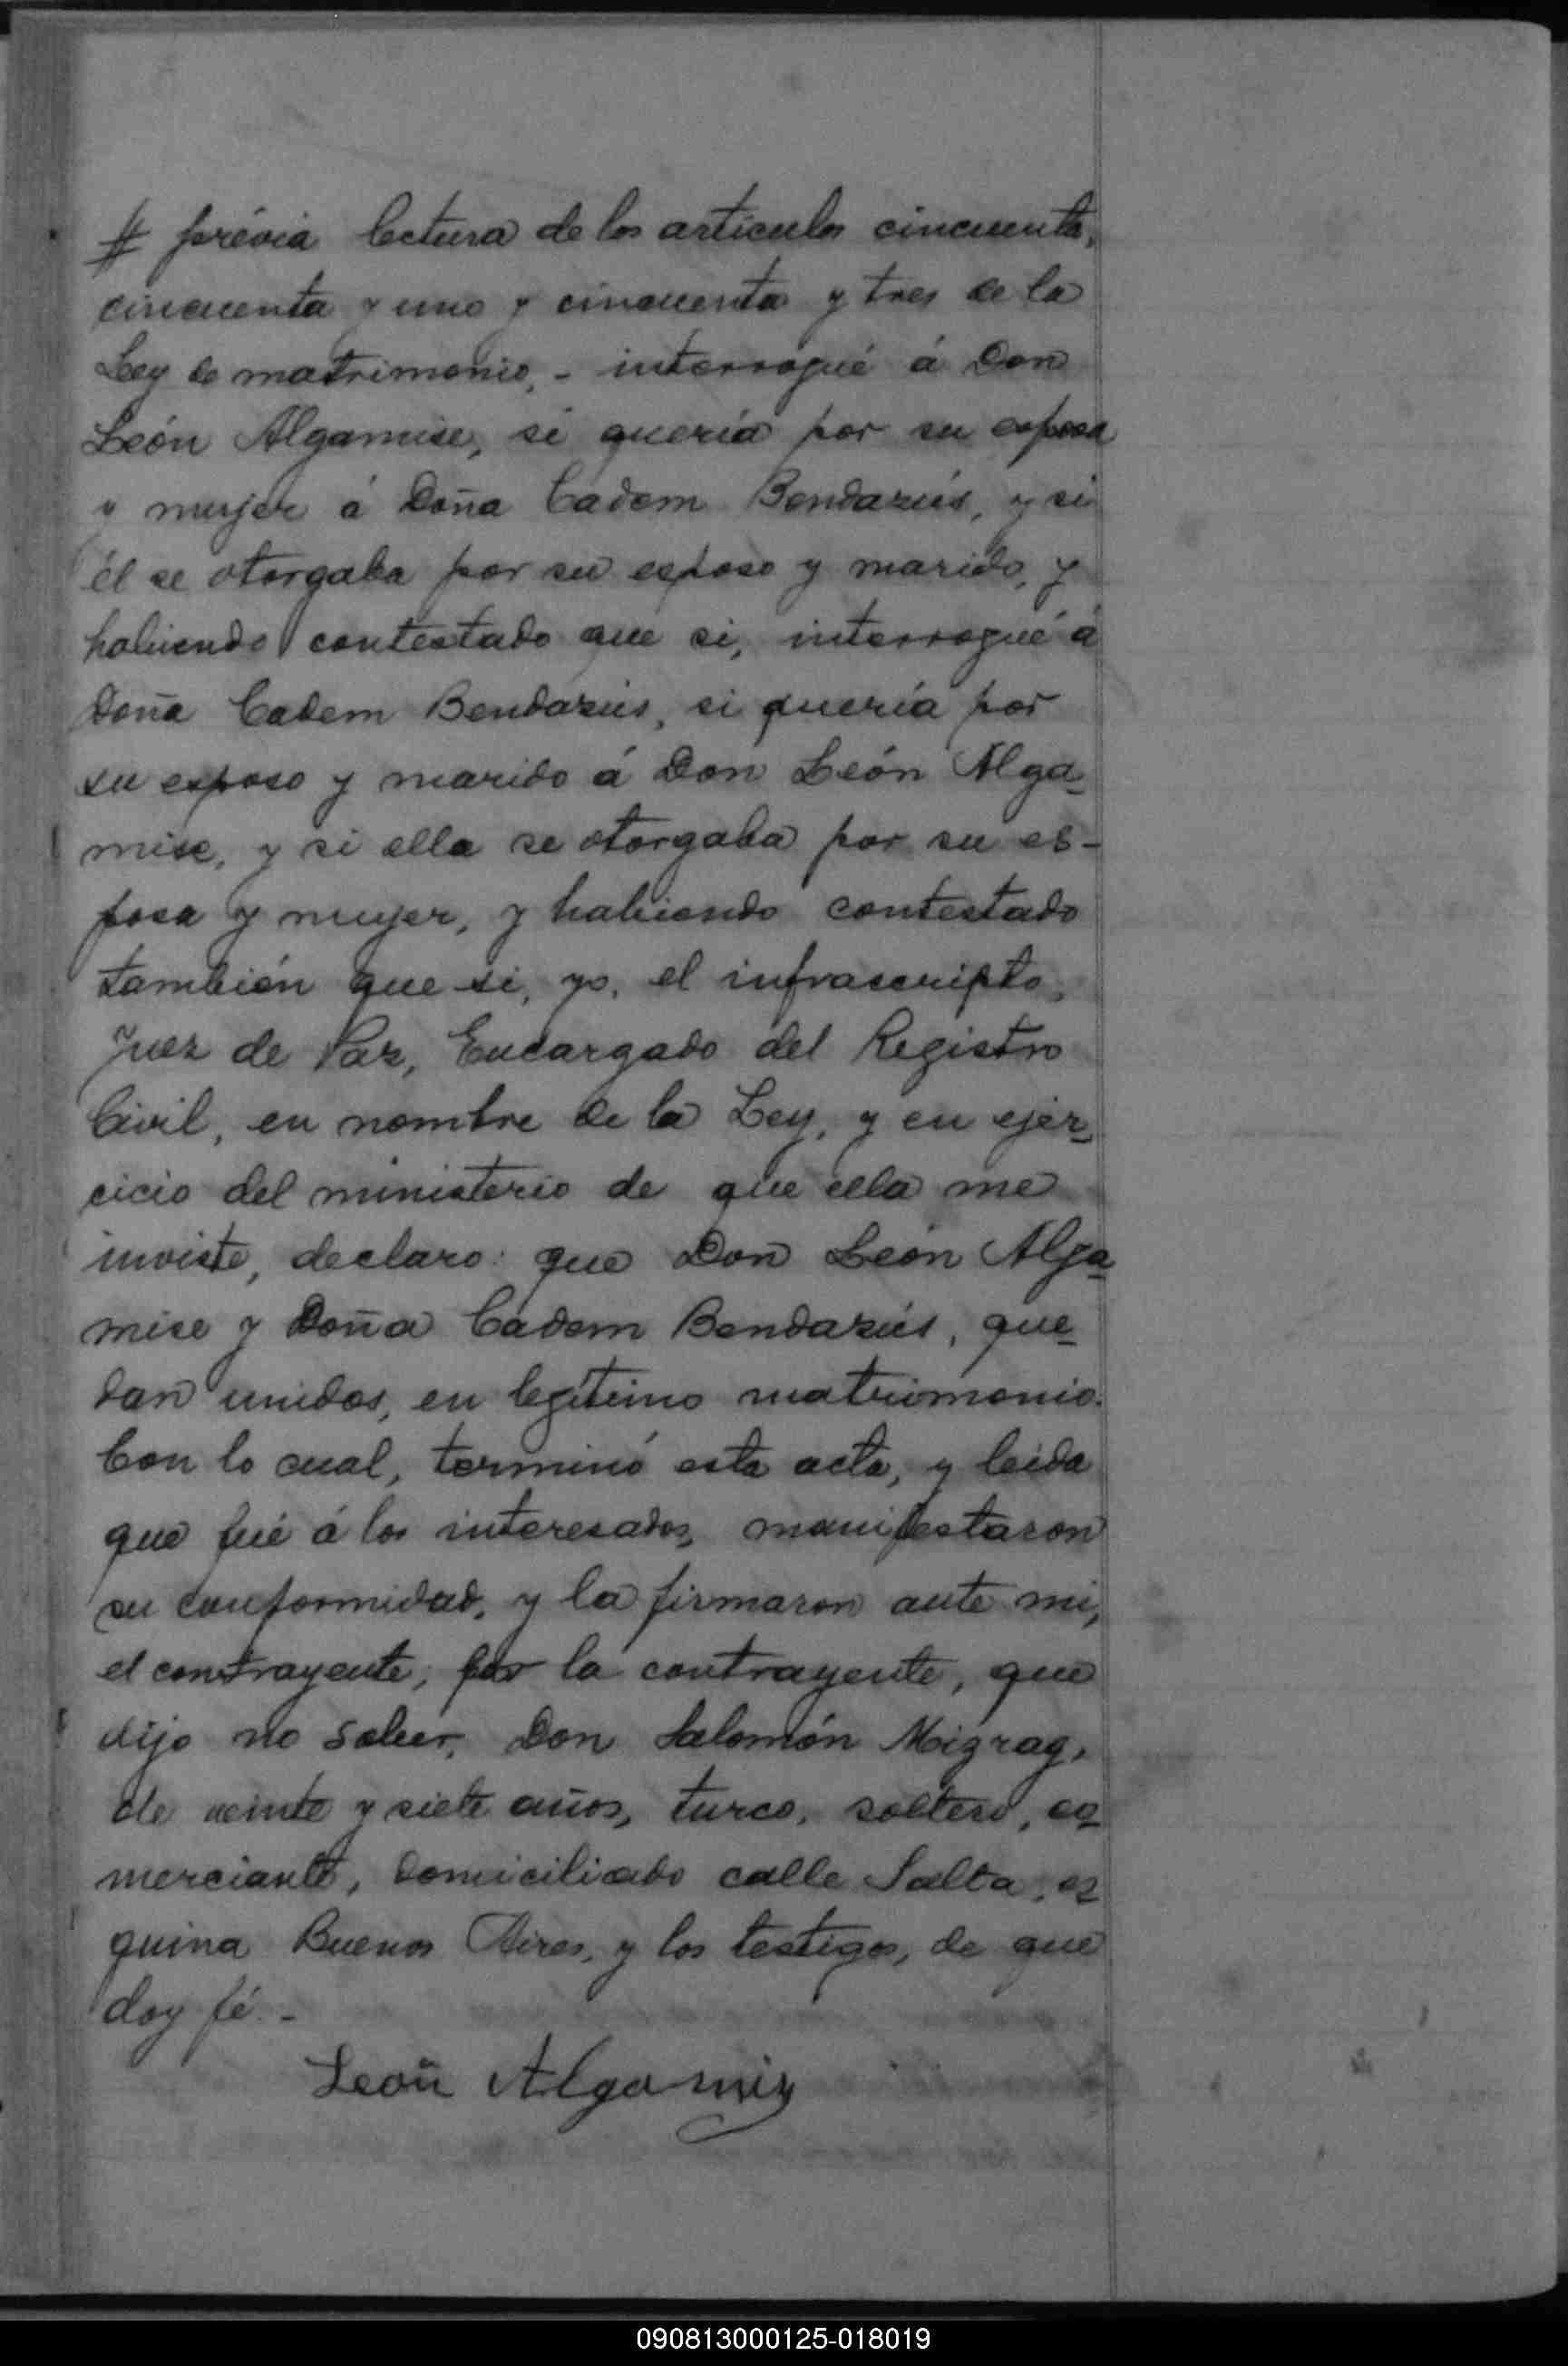 # prévia lectura de los artículos cincuenta,
cincuenta y uno y cincuenta y tres de la
Ley de matrimonio, - interrogué á Don
León Algamise, si quería por su esposa
y mujer á Doña Cadem Bendazús, y si
él se otorgaba por su esposo y marido, y
habiendo contestado que si, interrogué á
Doña Cadem Bendazús, si quería por
su esposo y marido á Don León Alga-
mise, y si ella se otorgaba por su es-
posa y mujer, y habiendo contestado
también que si, yo, el infrascripto,
Juez de Paz, Encargado del Registro
Civil, en nombre de la Ley, y en ejer-
cicio del ministerio de que ella me
inviste, declaro: que Don León Alga-
mise y Doña Cadem Bendazús, que-
dan unidos, en legítimo matrimonio.
Con lo cual, terminó esta acta, y leida
que fué á los interesados, manifestaron
su conformidad, y la firmaron ante mi,
el contrayente; por la contrayente, que
dijo no saber, Don Salomón Mizrag,
de veinte y siete años, turco, soltero, co-
merciante, domiciliado calle Salta, es-
quina Buenos Aires, y los testigos, de que
doy fé. -
León Algamiz
090813000125-018019